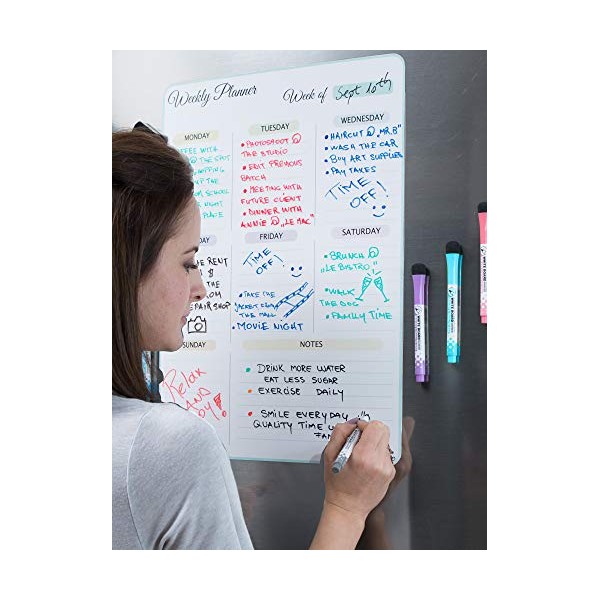 Weekly Planner
Week of Sept 10th
MONDAY
WITH
@ THE SPOT
THE
SCHOOL
NIGHT
PLACE
TUESDAY
• PHOTOSHOOT @
THE STUDIO
• EDIT PREVIOUS
BATCH
• MEETING WITH
FUTURE CLIENT
• DINNER WITH
ANNIE @ „LE MAC"
WEDNESDAY
• HAIRCUT @ „MR.B"
• WASH THE CAR
• BUY ART SUPPLIES
• PAY TAXES
TIME
OFF!
RENT
THE
SHOP
FRIDAY
TIME
OFF!
• TAKE THE
JACKET FROM
THE MALL
• MOVIE NIGHT
SATURDAY
• BRUNCH @
„LE BISTRO"
• WALK
THE DOG
• FAMILY TIME
SUNDAY
Relax
AND
!
NOTES
• DRINK MORE WATER
EAT LESS SUGAR
• EXERCISE DAILY
• SMILE EVERYDAY
QUALITY TIME
WHITE BOARD
WHITE BOARD
WHITE BOARD